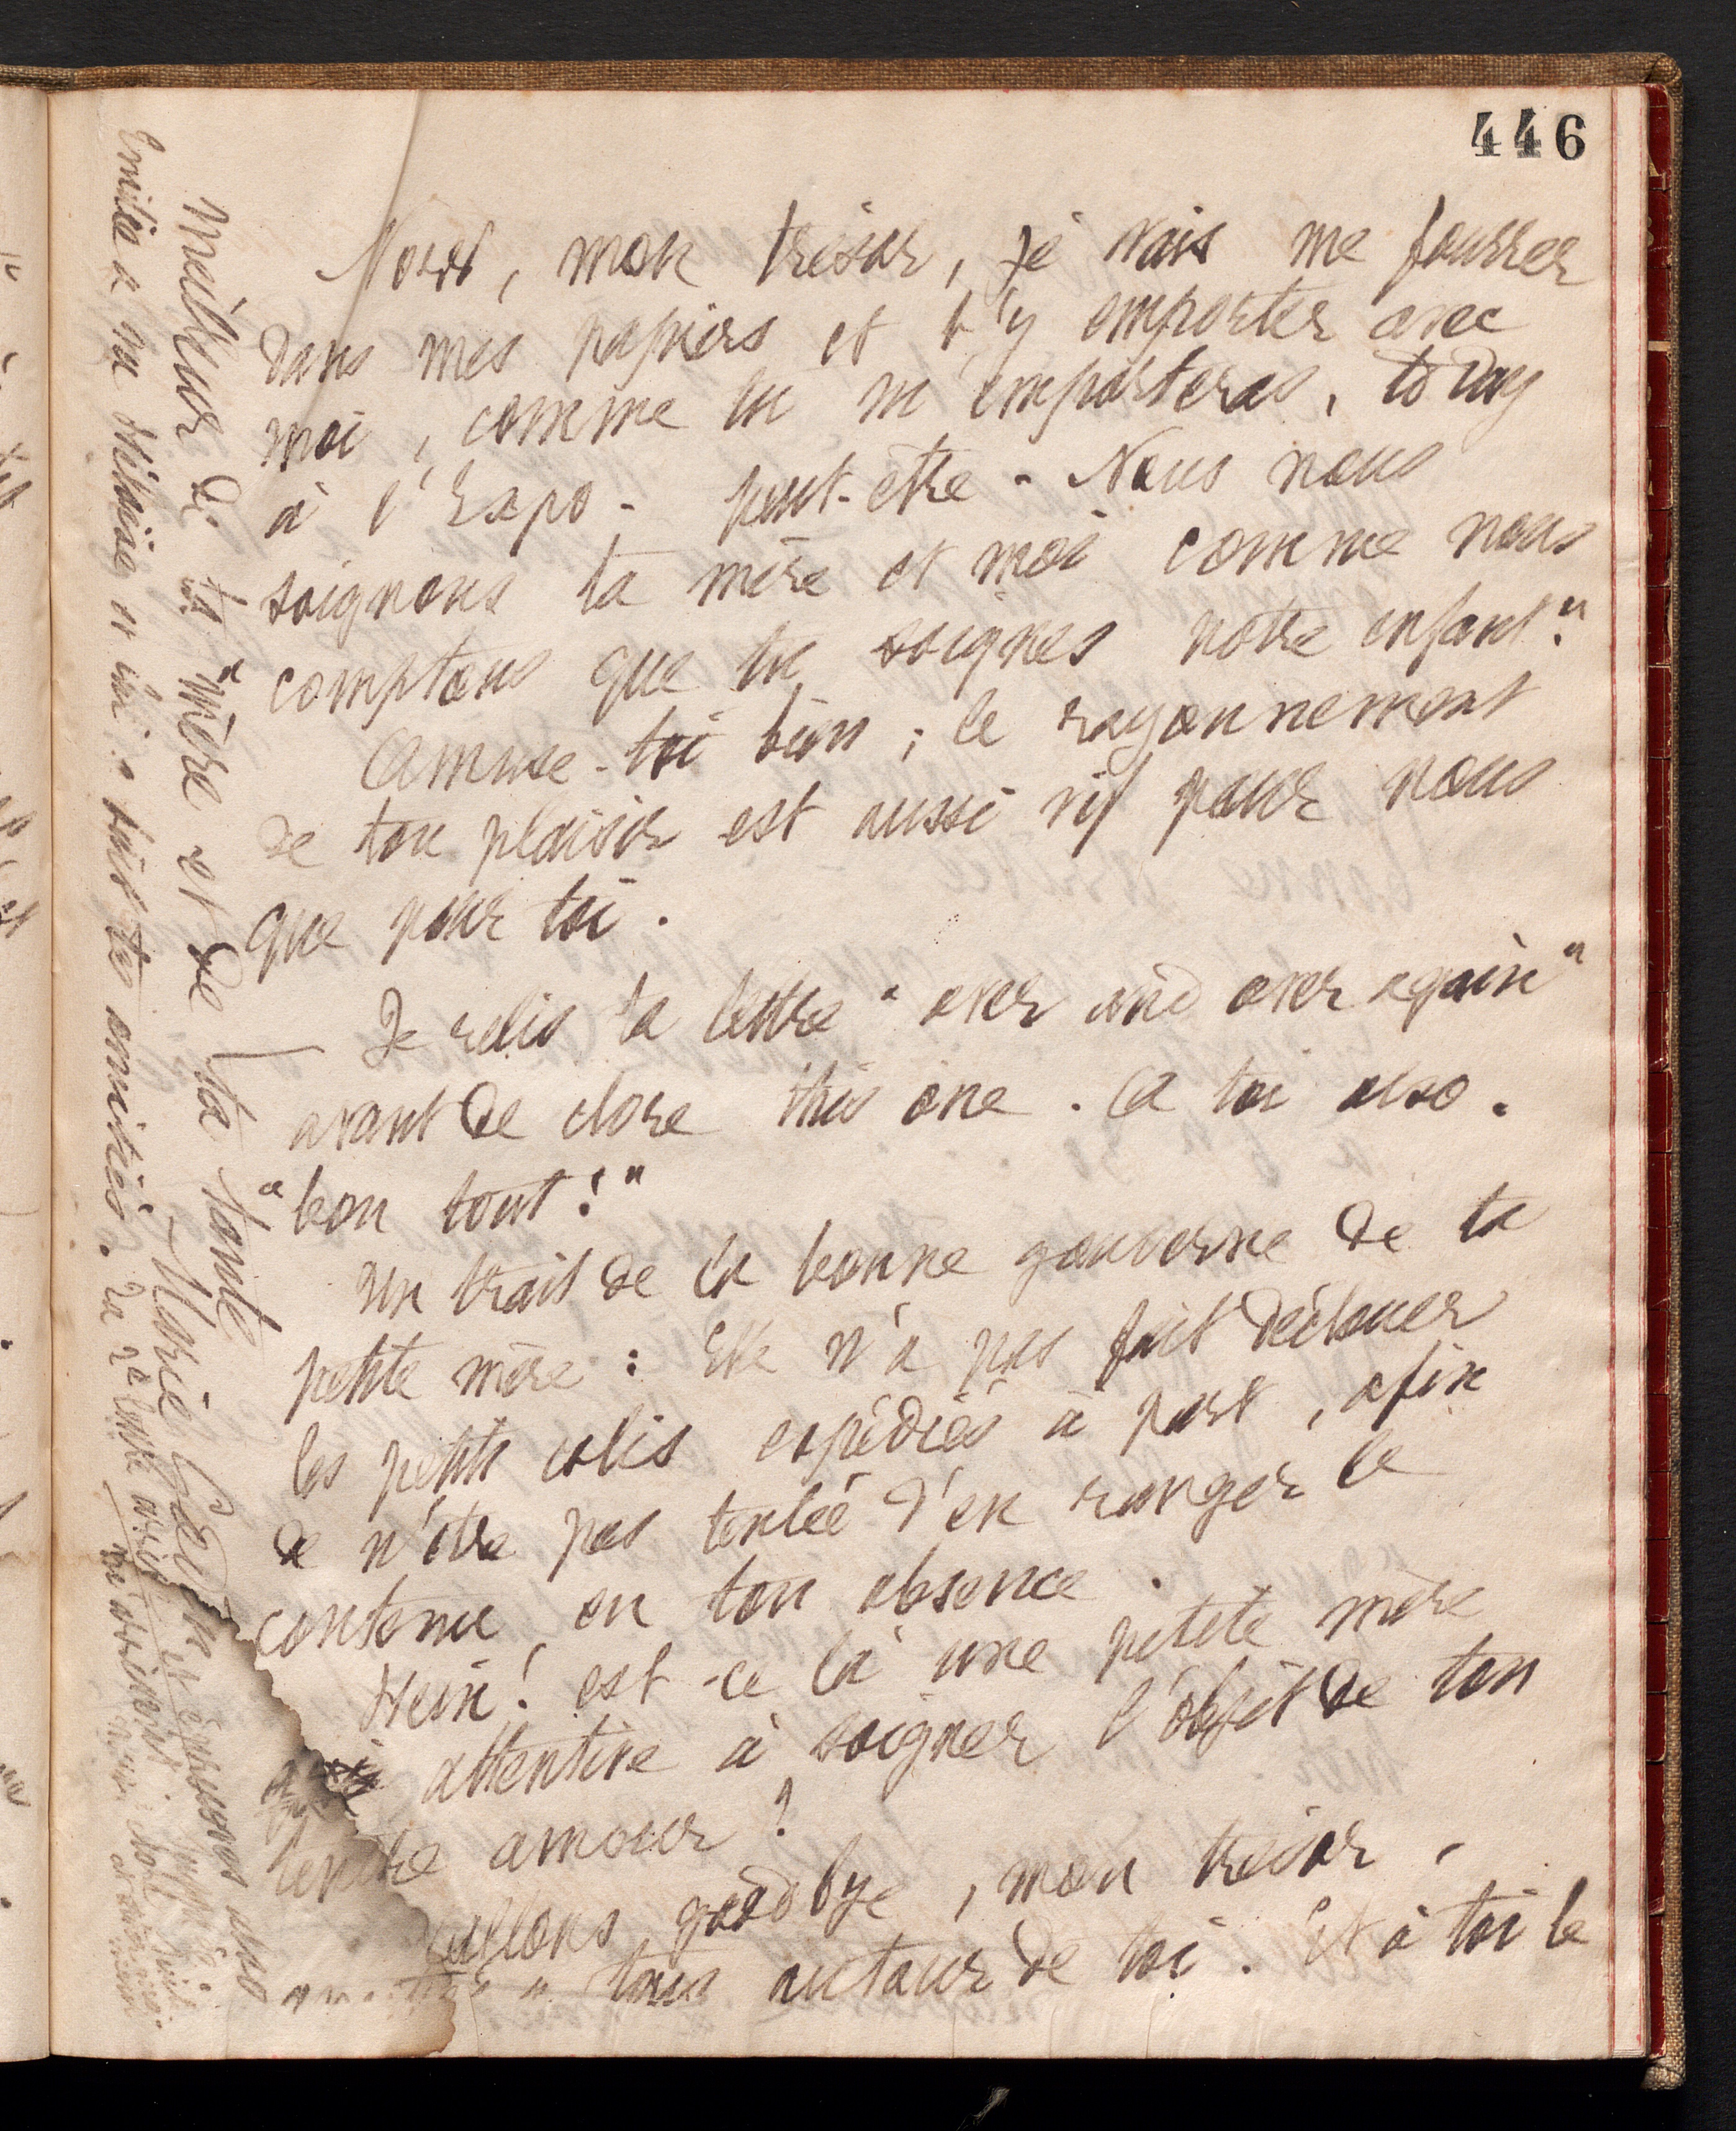 446
Now, mon trésor, je vais me fourrer
dans mes papiers et t'y emporter avec
moi, comme tu m'emporteras, to day
à l'Expo - peut-être. Nous nous
soignons ta mère et moi comme nous
comptons que tu soignes notre enfant."
Amuse-toi bien ; le rayonnement
de ton plaisir est aussi vif pour nous
que pour toi.
Je relis ta lettre "over and over again"
avant de clore this one. A toi also.
"bon tout!"
Un trait de la bonne gouverne de ta
petite mère : Elle n'a pas fait déclouer
les petits colis expédiés à part, afin
de n'être pas tentée d'en ranger le
contenu en ton absence.
Hein! est-ce là une petite mère
attentive à soigner l'objet de ton
tendre amour ?
allons good bye, mon trésor,
tous autour de toi. Et à toi le
meilleur de ta "mère et de ta tante
Marie
Emilie a vu Héloïse et lui a fait tes amitiés.